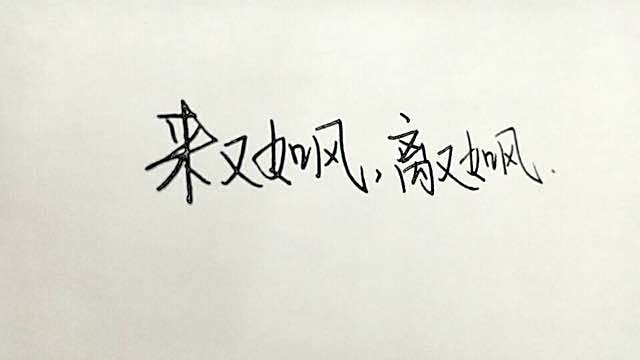 来又如风,离又如风.